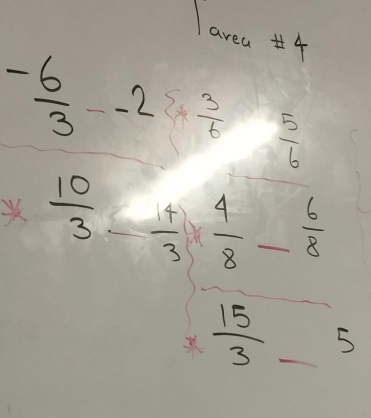 Tarea #4
-6/3 _ -2 * 3/6 _ 5/6
* 10/3 _ 14/3 * 4/8 _ 6/8
* 15/3 _ 5